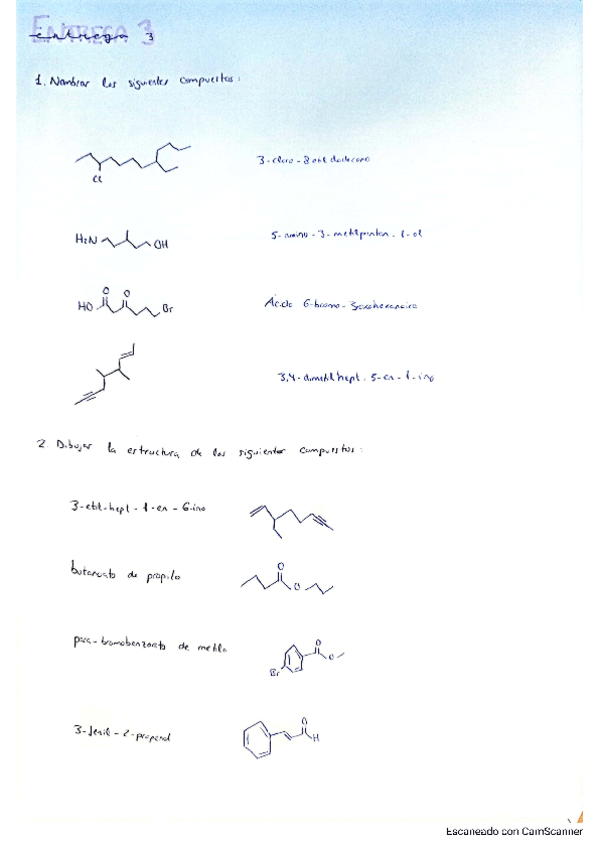 ENTREGA 3
entrega 3
1. Nombrar los siguientes compuestos:
Cl
3-cloro-8etil dodecano
H2N OH
5-amino-3-metilpentan-1-ol
O O
HO Br
Ácido 6-bromo-3oxohexanoico
3,4-dimetilhept-5-en-1-ino
2. Dibujar la estructura de los siguientes compuestos:
3-etil-hept-1-en-6-ino
butanoato de propilo
O
O
para-bromobenzoato de metilo
O
O
Br
3-fenil-2-propenal
O
H
Escaneado con CamScanner